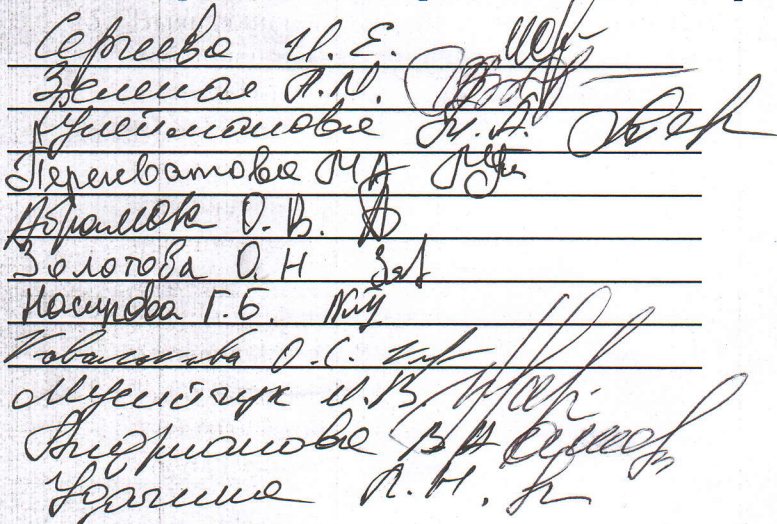 Сергеева И. Е.
Зеленая Л.Н.
Сулейманова Н. А.
Перехватова МА
Абрамок О. В.
Золотова О. Н
Насирова Г. Б.
Ковалькова О. С.
Мусийчук И. В.
Андрианова В А
Удачина Л. Н.